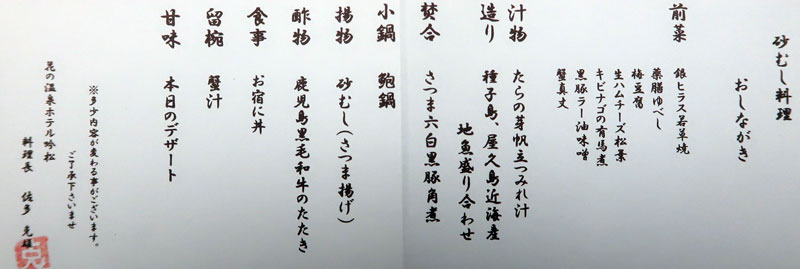 砂むし料理
おしながき
前菜
銀ヒラス若草焼
薬膳ゆべし
梅豆腐
生ハムチーズ松葉
キビナゴの有馬煮
黒豚ラー油味噌
蟹真丈
汁物 たらの芽帆立つみれ汁
造り 種子島、屋久島近海産
地魚盛り合わせ
焚合 さつま六白黒豚角煮
小鍋 鮑鍋
揚物 砂むし(さつま揚げ)
酢物 鹿児島黒毛和牛のたたき
食事 お宿に丼
留椀 蟹汁
甘味 本日のデザート
※多少内容が変わる事がございます。
ご了承下さいませ
花の温泉ホテル吟松
料理長 佐多